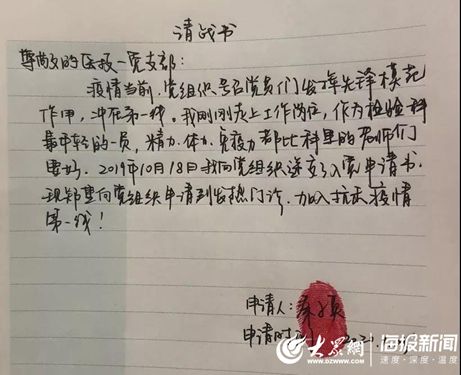 请战书
尊敬的医技一党支部：
疫情当前，党组织号召党员们发挥先锋模范
作用，冲在第一线。我刚刚走上工作岗位，作为检验科
最年轻的一员，精力、体力、免疫力都比科里的老师们
要好。2019年10月18日我向党组织递交了入党申请书，
现郑重向党组织申请到发热门诊，加入抗击疫情
第一线！
申请人：
申请时间
大众网 海报新闻
www.dzwww.com 速度·深度·温度